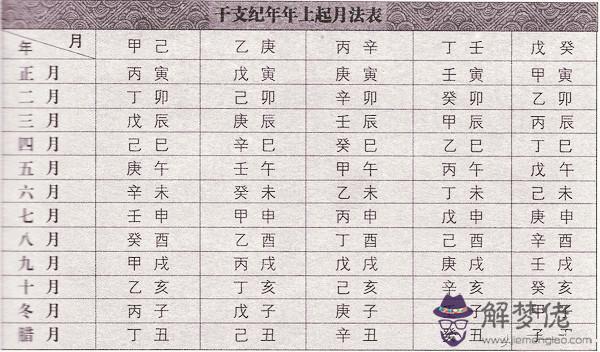 干支纪年年上起月法表
年 月 甲 己 乙 庚 丙 辛 丁 壬 戊 癸
正 月 丙 寅 戊 寅 庚 寅 壬 寅 甲 寅
二 月 丁 卯 己 卯 辛 卯 癸 卯 乙 卯
三 月 戊 辰 庚 辰 壬 辰 甲 辰 丙 辰
四 月 己 巳 辛 巳 癸 巳 乙 巳 丁 巳
五 月 庚 午 壬 午 甲 午 丙 午 戊 午
六 月 辛 未 癸 未 乙 未 丁 未 己 未
七 月 壬 申 甲 申 丙 申 戊 申 庚 申
八 月 癸 酉 乙 酉 丁 酉 己 酉 辛 酉
九 月 甲 戌 丙 戌 戊 戌 庚 戌 壬 戌
十 月 乙 亥 丁 亥 己 亥 辛 亥 癸 亥
冬 月 丙 子 戊 子 庚 子 子 甲 子
腊 月 丁 丑 己 丑 辛 丑
解梦佬
www.jiemenglao.com